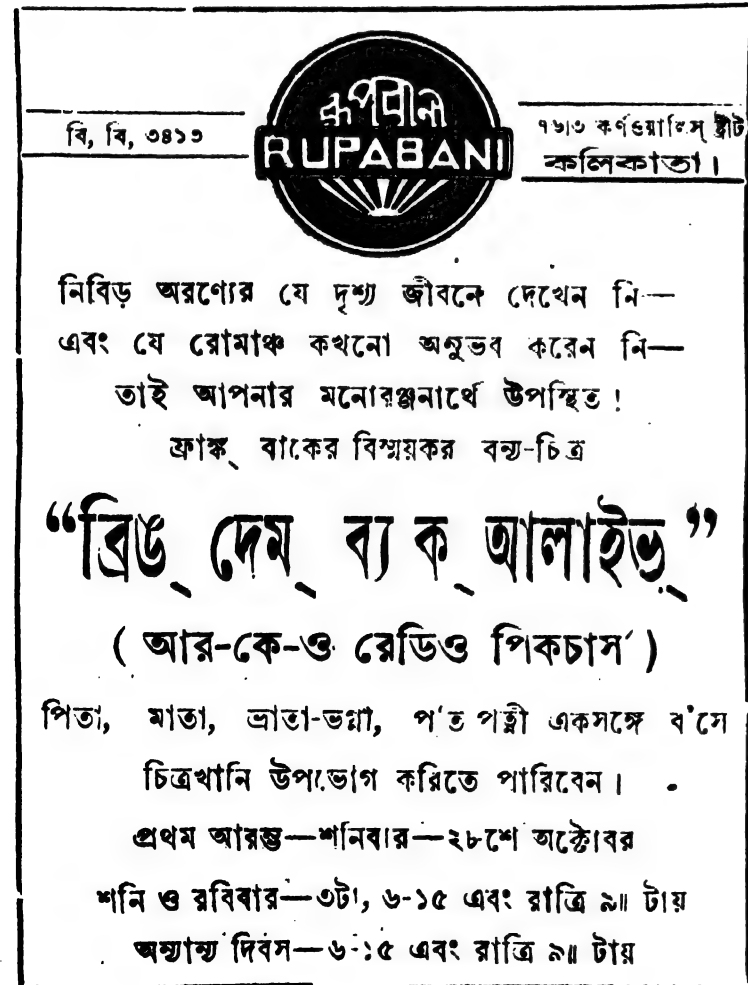 বি, বি, ৩৪১৩
রূপবাণী
RUPABANI
৭৬।৩ কর্ণওয়ালিস্ ষ্ট্রীট
কলিকাতা।
নিবিড় অরণ্যের যে দৃশ্য জীবনে দেখেন নি—
এবং যে রোমাঞ্চ কখনো অনুভব করেন নি—
তাই আপনার মনোরঞ্জনার্থে উপস্থিত!
ফ্রাঙ্ক্ বাকের বিস্ময়কর বন্য-চিত্র
“ব্রিঙ্ দেম্ ব্যাক্ আলাইভ্”
( আর-কে-ও রেডিও পিকচার্স )
পিতা, মাতা, ভ্রাতা-ভগ্নী, পতি পত্নী একসঙ্গে ব'সে
চিত্রখানি উপভোগ করিতে পারিবেন।
প্রথম আরম্ভ—শনিবার—২৮শে অক্টোবর
শনি ও রবিবার—৩টা, ৬-১৫ এবং রাত্রি ৯॥ টায়
অন্যান্য দিবস—৬-১৫ এবং রাত্রি ৯॥ টায়